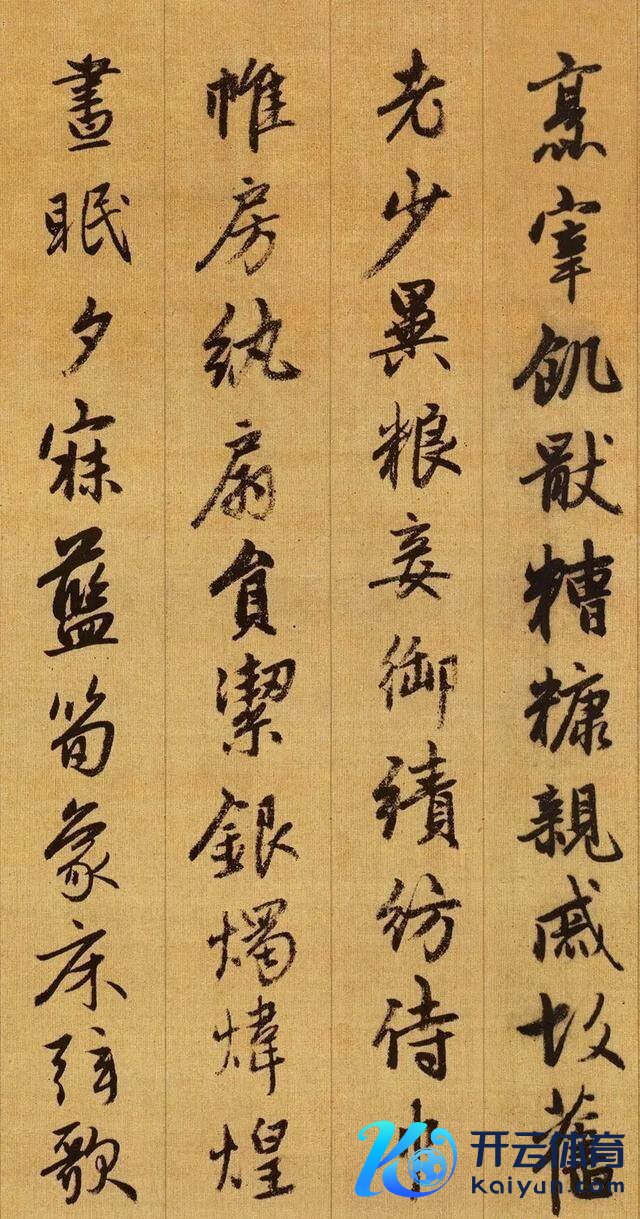 烹宰飢猒糟糠親戚故舊
老少異粮妾御績紡侍巾
帷房紈扇員潔銀燭煒煌
晝眠夕寐藍筍象床弦歌
开云体育
Kaiyun.com